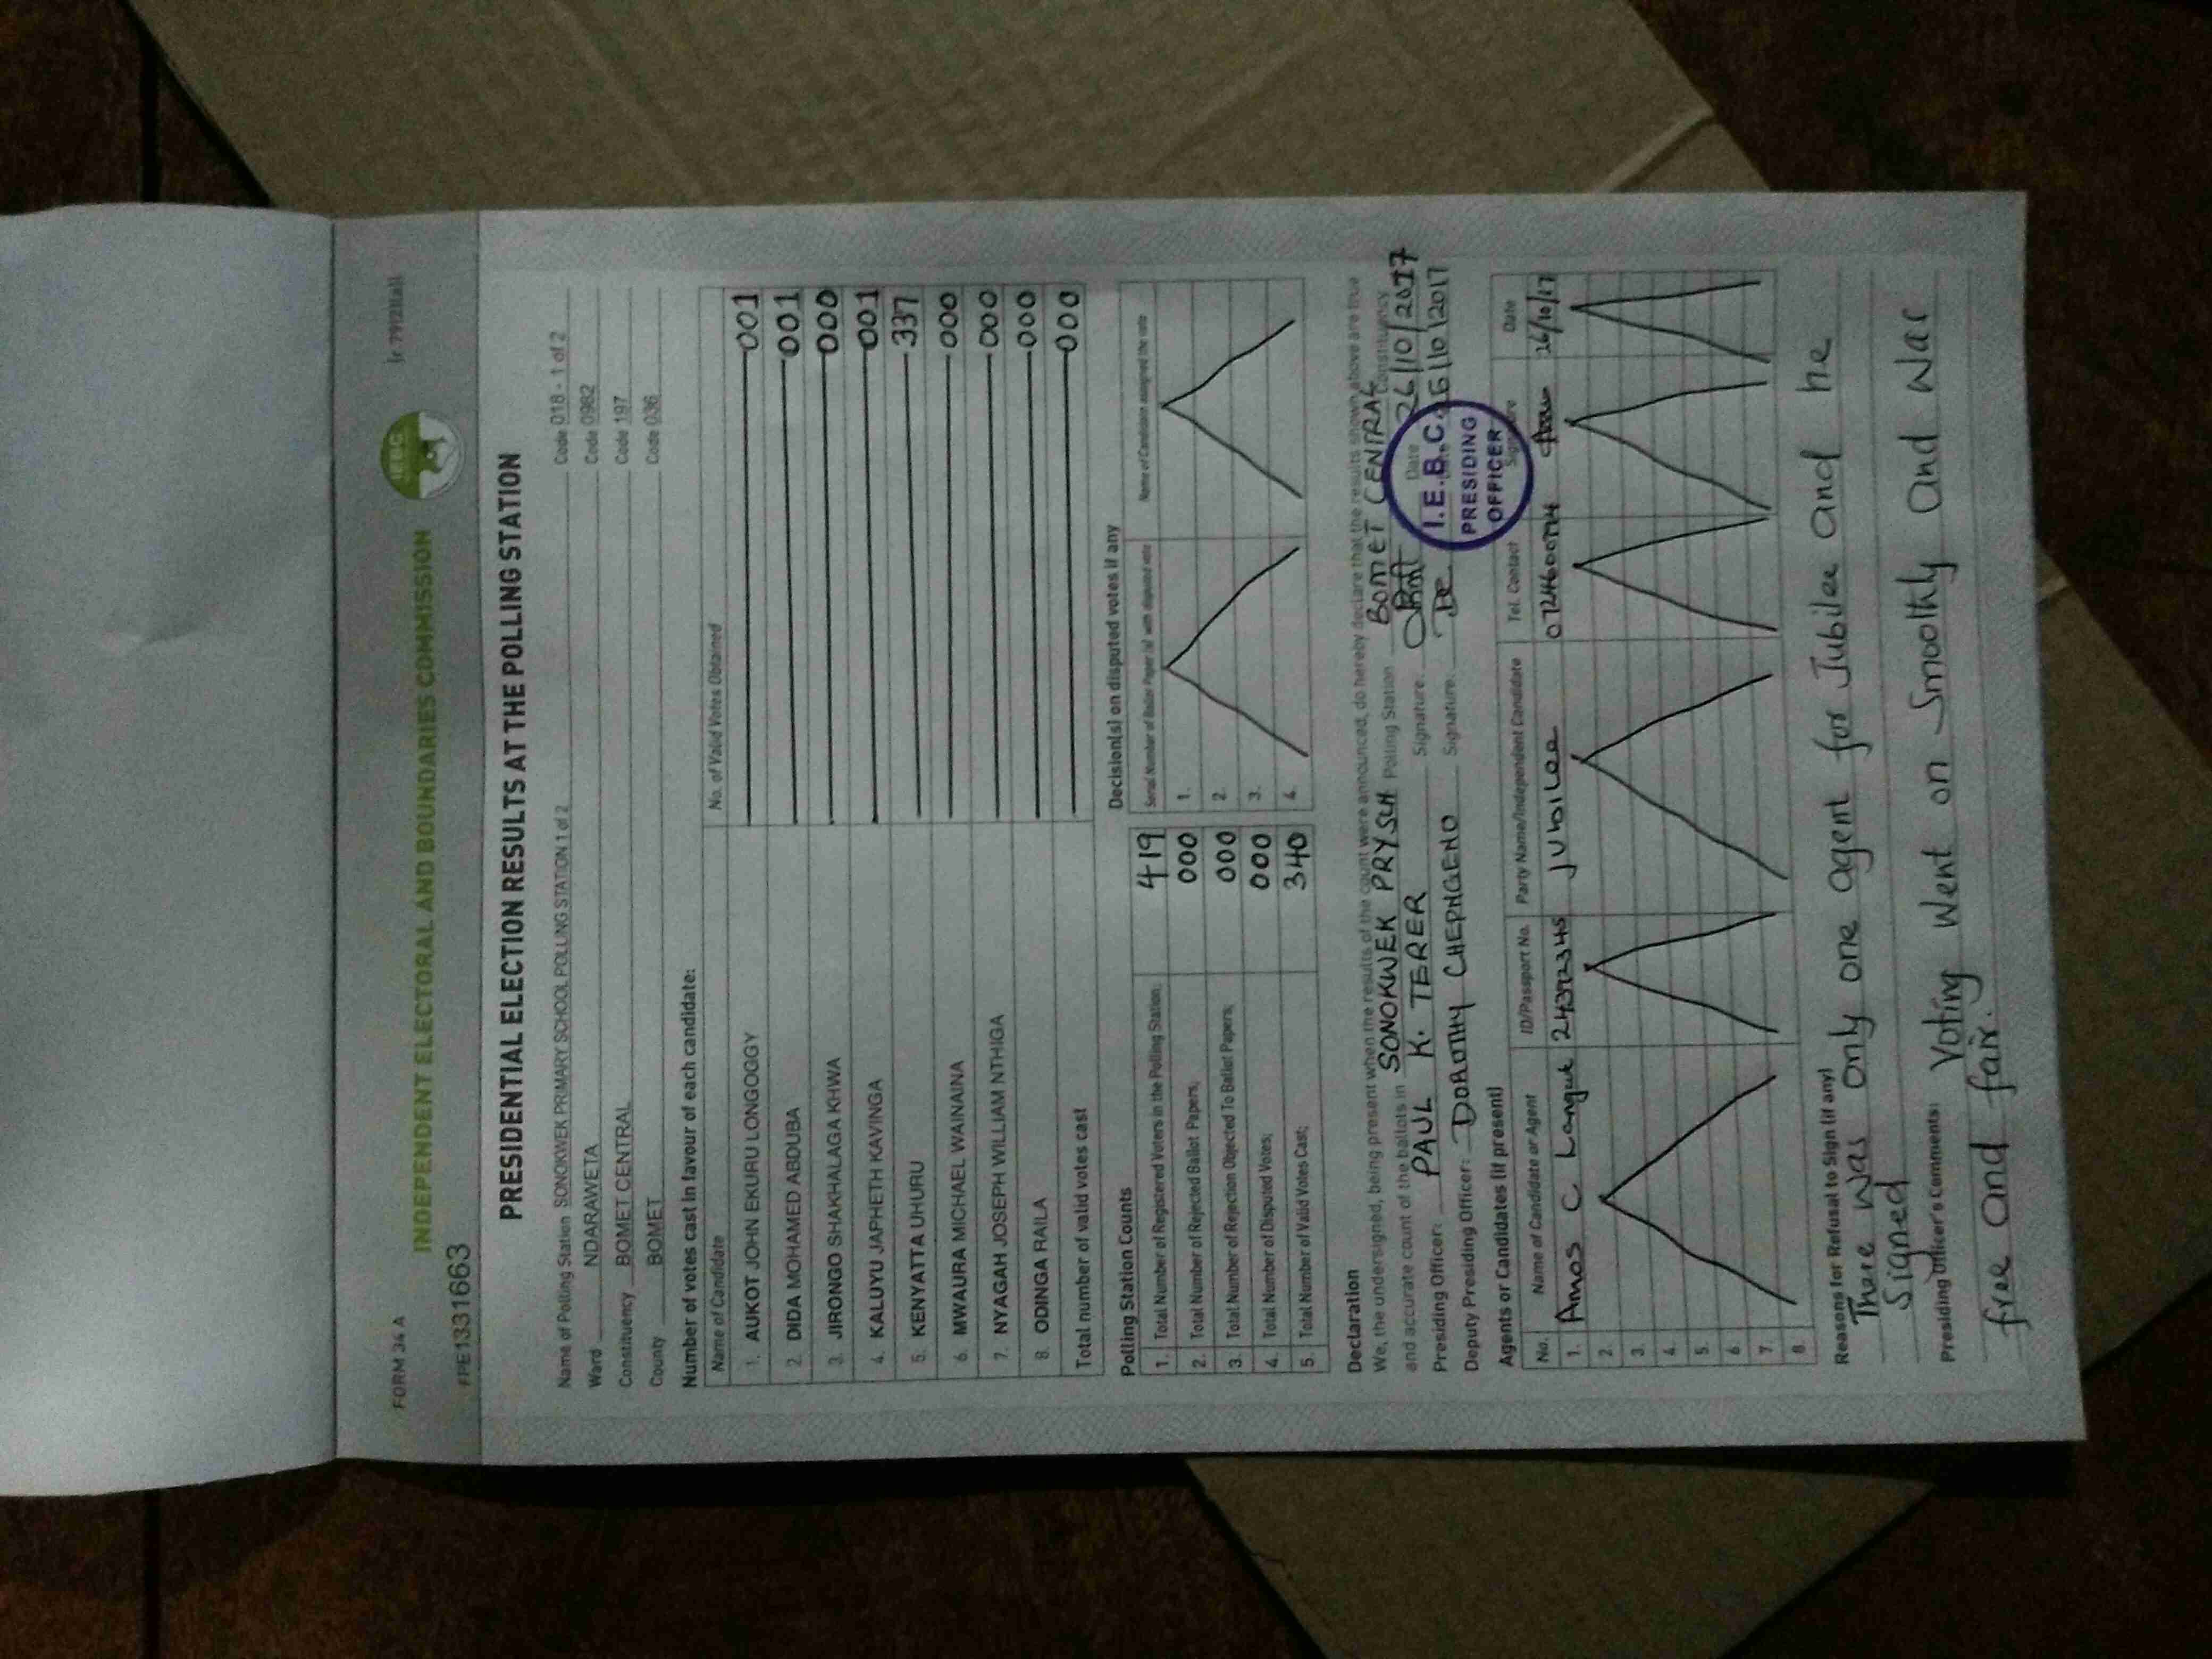 FORM 34 A
INDEPENDENT ELECTORAL AND BOUNDARIES COMMISSION
I.E.B.C.
FPE1331663
PRESIDENTIAL ELECTION RESULTS AT THE POLLING STATION
Name of Polling Station SONOKWEK PRIMARY SCHOOL POLLING STATION 1 of 2 Code 018 - 1 of 2
Ward NDARAWETA Code 0982
Constituency BOMET CENTRAL Code 197
County BOMET Code 036
Number of votes cast in favour of each candidate:
Name of Candidate No. of Valid Votes Obtained
1. AUKOT JOHN EKURU LONGOGGY 001
2. DIDA MOHAMED ABDUBA 001
3. JIRONGO SHAKHALAGA KHWA 000
4. KALUYU JAPHETH KAVINGA 001
5. KENYATTA UHURU 337
6. MWAURA MICHAEL WAINAINA 000
7. NYAGAH JOSEPH WILLIAM NTHIGA 000
8. ODINGA RAILA 000
Total number of valid votes cast 000
Polling Station Counts Decision(s) on disputed votes if any
Serial Number of Ballot Paper (s) with disputed vote Name of Candidate assigned the vote
1. Total Number of Registered Voters in the Polling Station; 419 1.
2. Total Number of Rejected Ballot Papers; 000 2.
3. Total Number of Rejection Objected To Ballot Papers; 000 3.
4. Total Number of Disputed Votes; 000 4.
5. Total Number of Valid Votes Cast; 340
Declaration
We, the undersigned, being present when the results of the count were announced, do hereby declare that the results shown above are true
and accurate count of the ballots in SONOKWEK PRY SCH Polling Station BOMET CENTRAL Constituency
Presiding Officer: PAUL K. TERER Signature Date 26/10/2017
Deputy Presiding Officer: DOROTHY CHEPNGENO Signature 26/10/2017
I.E.B.C.
PRESIDING
OFFICER
Agents or Candidates (if present)
No. Name of Candidate or Agent ID/Passport No. Party Name/Independent Candidate Tel. Contact Signature Date
1. Amos C Languk JUbilee 26/10/17
2.
3.
4.
5.
6.
7.
8.
Reasons for Refusal to Sign (if any)
There was only one agent for Jubilee and he
Signed
Presiding Officer's Comments: Voting went on Smoothly and was
free and fair.